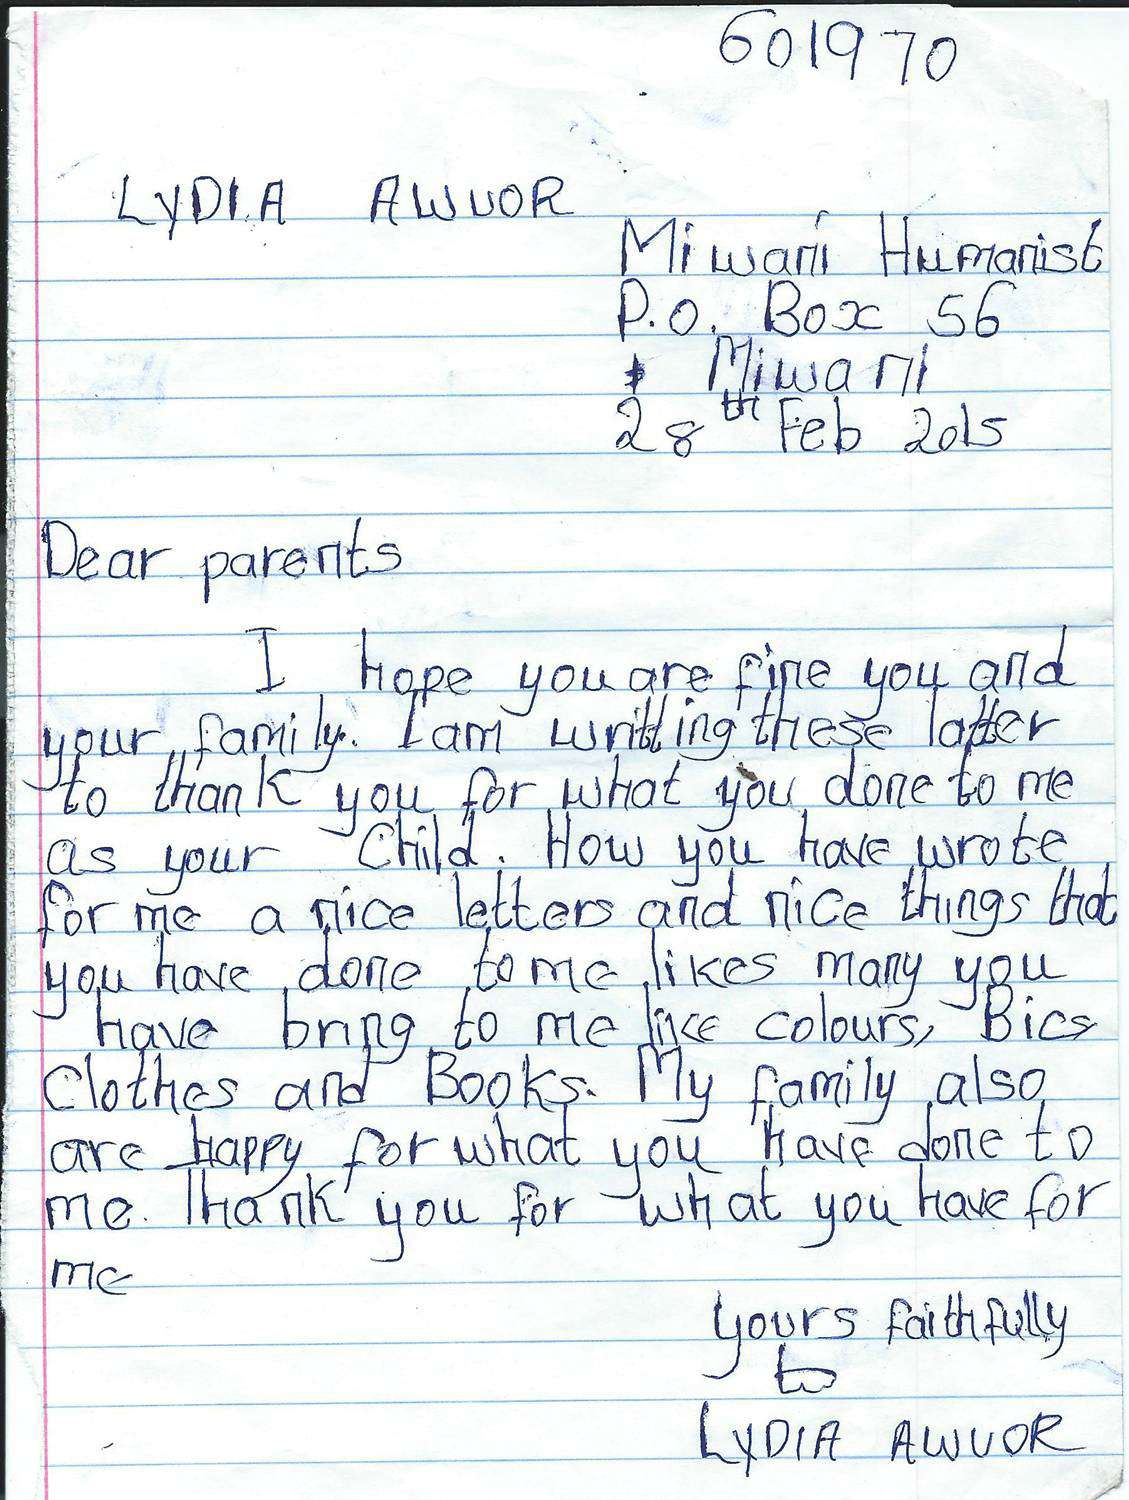 601970
LYDIA AWUOR
Miwani Humanist
P.O. Box 56
Miwani
28th Feb 2015
Dear parents
I hope you are fine you and
your family. I am writting these latter
to thank you for what you done to me
as your Child. How you have wrote
for me a nice letters and nice things that
you have done to me likes many you
have bring to me like colours, Bics
Clothes and Books. My family also
are happy for what you have done to
me. Thank you for what you have for
me
yours faithfully
LYDIA AWUOR